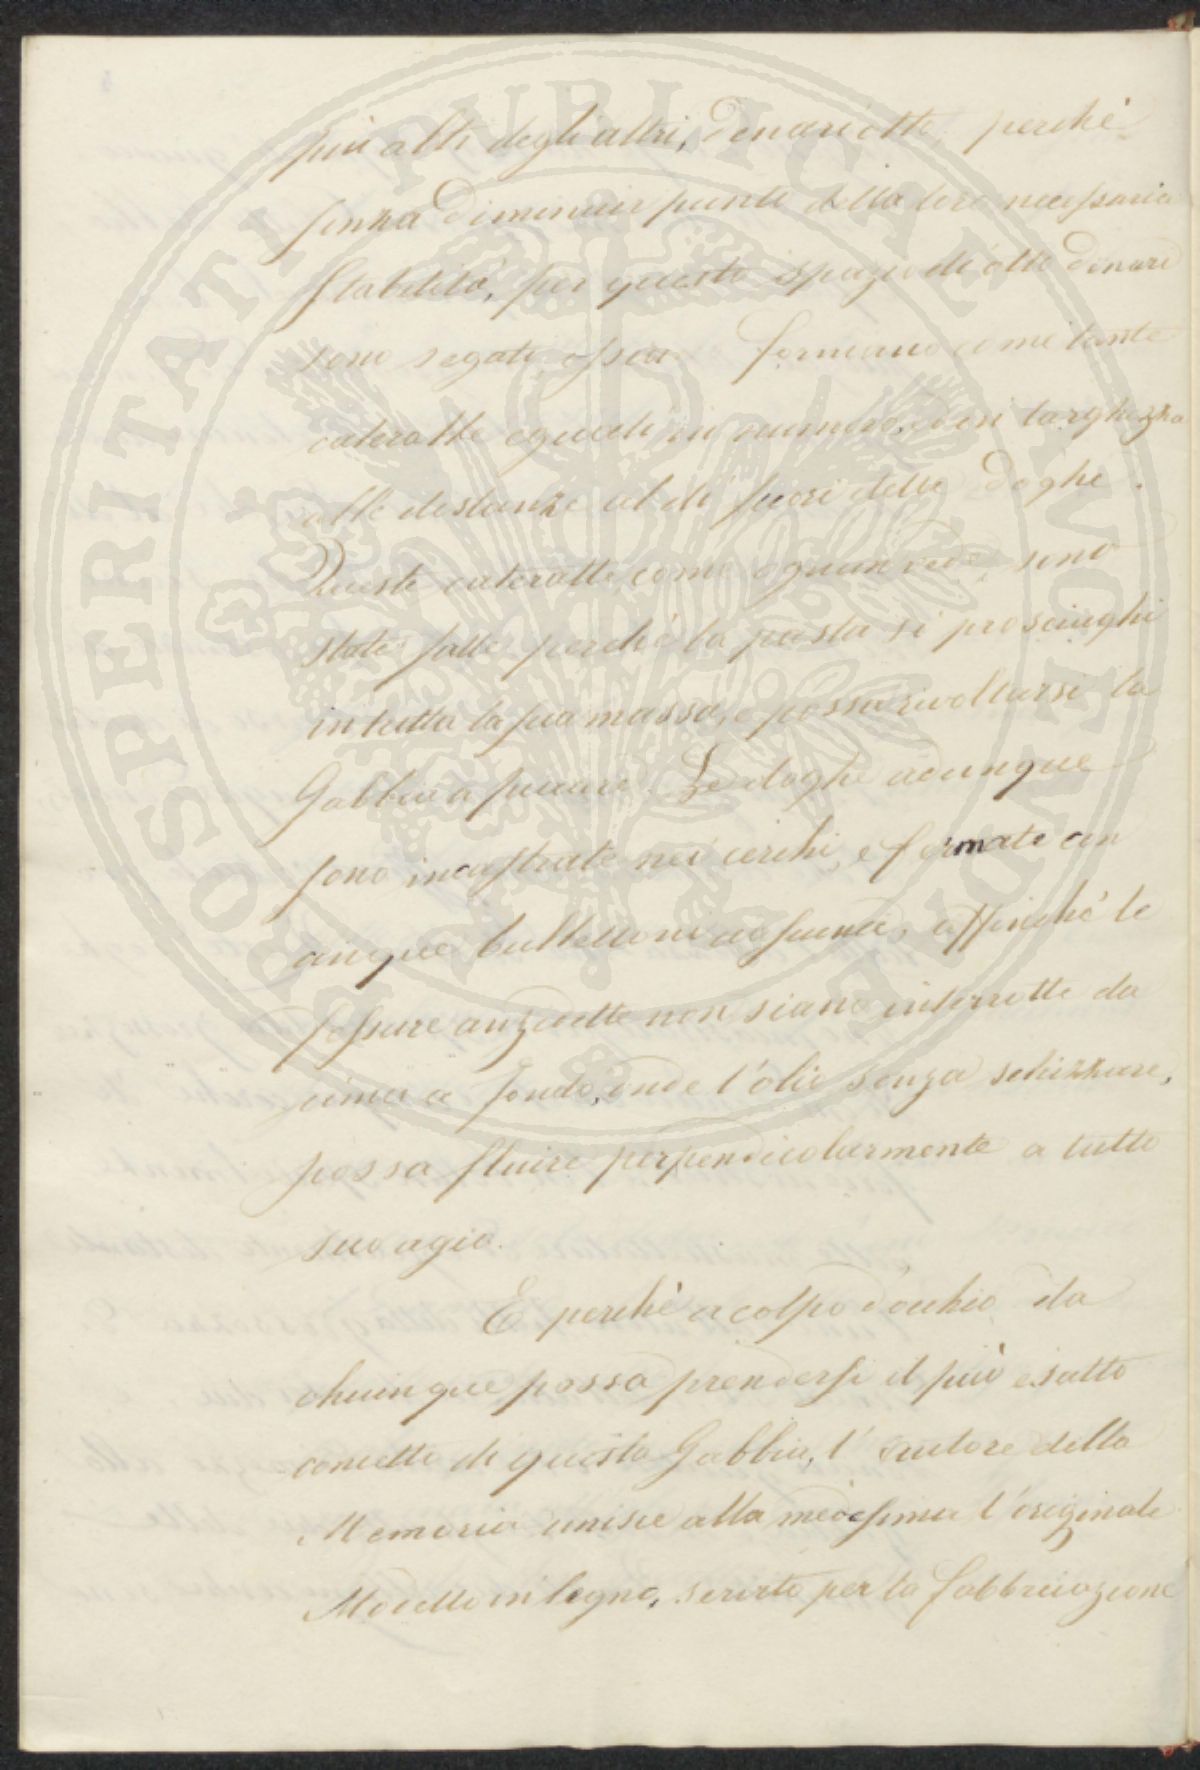 più alti degli altri, denari otto, perchè
senza diminuir punto della loro necessaria
stabilità, per questo spazio di otto denari
sono segati, ossia formano come tante
cateratte eguali in numero, ed in larghezza
alle distanze al di fuori delle doghe.
Queste cateratte, come ognun vede, sono
state fatte perchè la pasta si prosciughi
in tutta la sua massa, e possa rivoltarsi la
Gabbia a piacere. Le doghe adunque
sono incastrate nei cerchi, e fermate con
cinque bullettoni cadauna, affinchè le
fessure anzidette non siano interrotte da
cima a fondo, onde l'olio senza schizzare,
possa fluire perpendicolarmente a tutto
suo agio.
E perchè a colpo d'occhio da
chiunque possa prendersi il più esatto
concetto di questa Gabbia, l'autore della
Memoria unisce alla medesima l'originale
Modello in legno, servito per la fabbricazione
PROSPERITATI PUBLICAE